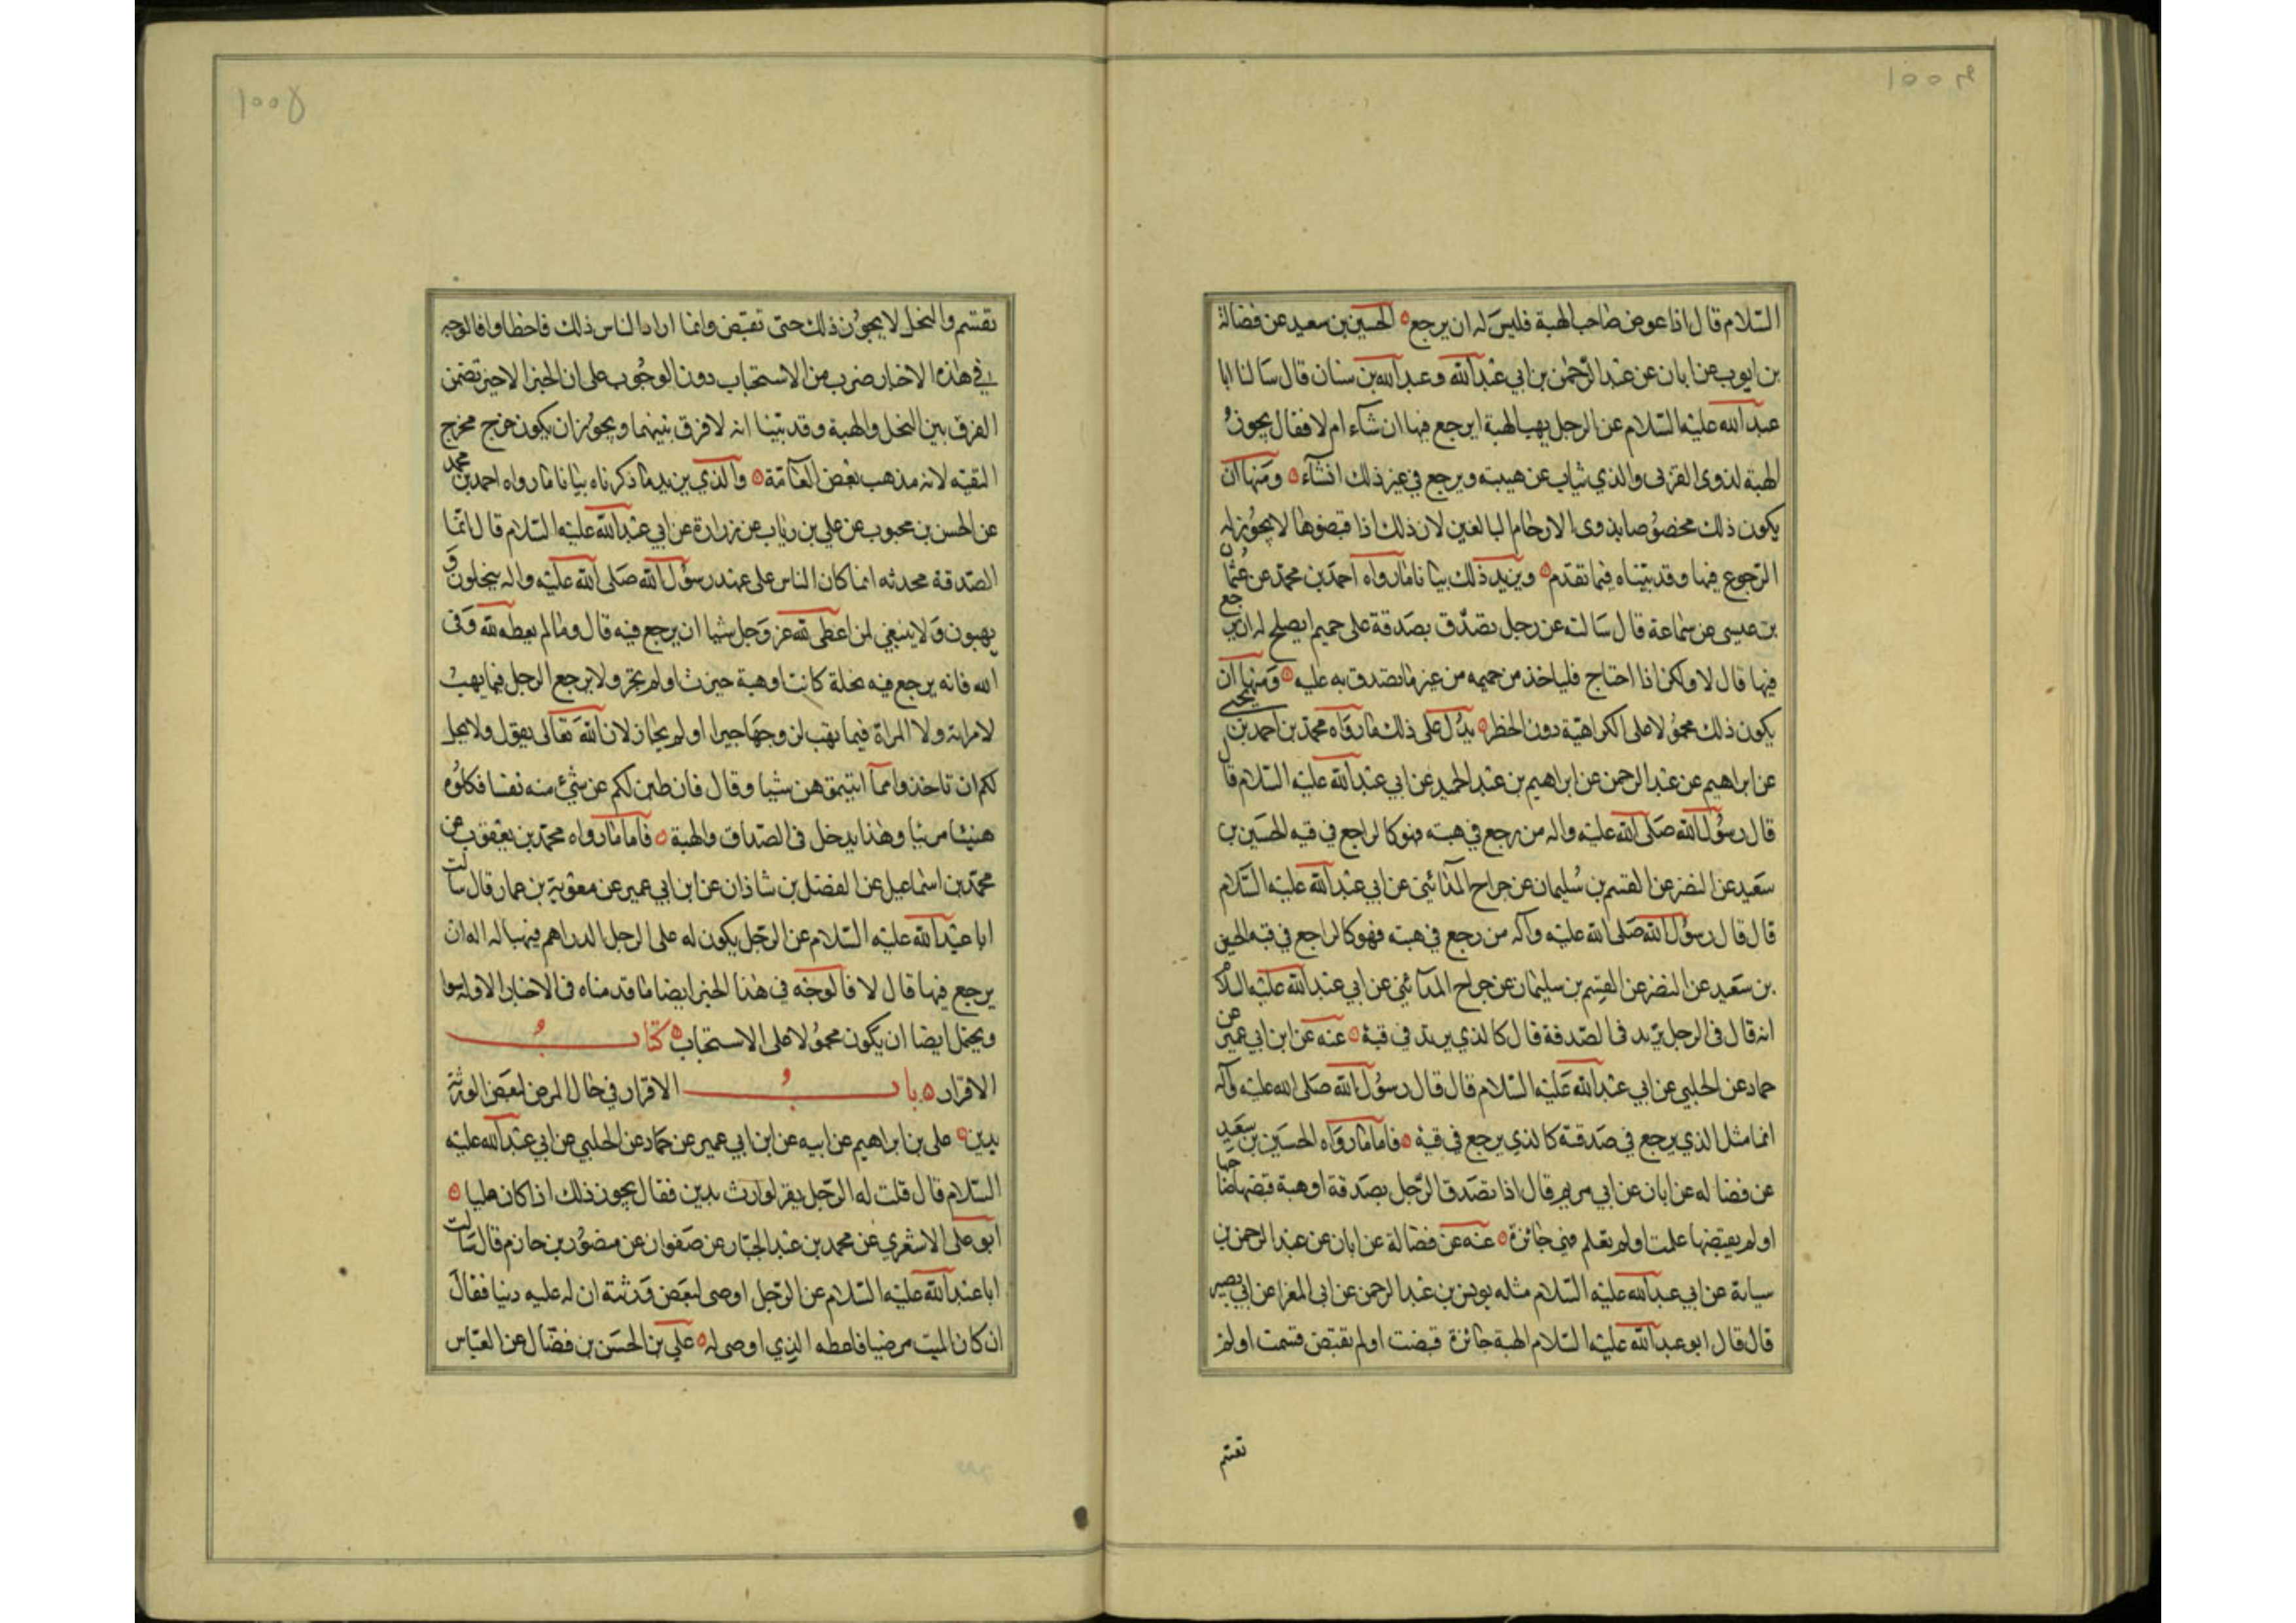 السّلام قال اذا عوض صاحب الهبة فليس له ان يرجع الحسين بن سعيد عن فضالة
بن ايوب عن ابان عن عبد الرّحمن بن ابي عبد الله وعبد الله بن سنان قال سالنا ابا
عبد الله عليه السّلام عن الرجل يهب الهبة ايرجع فيها ان شآء ام لا فقال يجوز
الهبة لذوى القربى والذي يثاب عن هبته ويرجع في غير ذلك ان شآء ومنها ان
يكون ذلك مخصوصا بذوى الارحام البالغين لان ذلك اذا قبضوها لا يجوز له
الرّجوع فيها وقد بيّناه فيما تقدم ويزيد ذلك بيانا ما رواه احمد بن محمد عن عثمان
بن عيسى عن سماعة قال سالته عن رجل تصدّق بصدقة على حميم ايصلح له ان يرجع
فيها قال لا ولكن اذا احتاج فلياخذ من حميمه من غير ما تصدق به عليه ومنها ان
يكون ذلك محمولا على الكراهيّة دون الحظر يدل على ذلك ما رواه محمد بن احمد بن يحيى
عن ابراهيم عن عبد الرحمن عن ابراهيم بن عبد الحميد عن ابي عبد الله عليه السّلام قال
قال رسول الله صلى الله عليه واله من رجع في هبته فهو كالراجع في قيه الحسين بن
سعيد عن النضر عن القسم بن سليمان عن جراح المدائني عن ابي عبد الله عليه السّلام
قال قال رسول الله صلى الله عليه وآله من رجع في هبته فهو كالراجع في قيه الحسين
بن سعيد عن النضر عن القسم بن سليمان عن جراح المدآئني عن ابي عبد الله عليه السلام
انه قال فى الرجل يرتد فى الصدقة قال كالذي يرتد في قيه عنه عن ابن ابي عمير عن
حماد عن الحلبي عن ابي عبد الله عليه السّلام قال قال رسول الله صلى الله عليه وآله
انما مثل الذي يرجع في صدقته كالذي يرجع في قيه فاما ما رواه الحسين بن سعيد
عن فضاله عن ابان عن ابي مريم قال اذا تصدق الرّجل بصدقة او هبة قبضها صاحبها
او لم يقبضها علمت او لم تعلم فهي جائزة عنه عن فضالة عن ابان عن عبد الرحمن بن
سيابة عن ابي عبد الله عليه السّلام مثله يونس بن عبد الرحمن عن ابى المغرا عن ابي بصير
قال قال ابو عبد الله عليه السّلام الهبة جائزة قبضت او لم تقبض قسمت او لم
تقسم
تقسم والنحل لا يجوز ذلك حتى تقبض وانما اراد الناس ذلك فاخطاوا فالوجه
في هذه الاخبار ضرب من الاستحباب دون الوجوب على ان الخبر الاخير تضمن
الفرق بين النحل والهبة وقد بيّنا انه لا فرق بينهما ويجوز ان يكون خرج مخرج
التقيه لانه مذهب بعض العآمّة والذي يزيد ما ذكرناه بيانا ما رواه احمد بن محمد
عن الحسن بن محبوب عن علي بن رئاب عن زرارة عن ابي عبد الله عليه السّلام قال انّما
الصّدقة محدثه انما كان الناس على عهد رسول الله صلى الله عليه واله ينحلون و
يهبون ولا ينبغي لمن اعطى لله عز وجل شيا ان يرجع فيه قال وما لم يعطه لله وفى
الله فانه يرجع فيه نحلة كانت او هبة حيزت او لم تحز ولا يرجع الرجل فيما يهب
لامراته ولا المراة فيما تهب لزوجها حيزا او لم يحاز لان الله تعالى يقول ولا يحل
لكم ان تاخذوا مما آتيتموهن شيا وقال فان طبن لكم عن شيء منه نفسا فكلوه
هنيئا مريئا وهذا يدخل فى الصّداق والهبة فاما ما رواه محمّد بن يعقوب عن
محمّد بن اسماعيل عن الفضل بن شاذان عن ابن ابي عمير عن معوية بن عمار قال سالت
ابا عبد الله عليه السّلام عن الرّجل يكون له على الرجل الدراهم فيهبها له اله ان
يرجع فيها قال لا فالوجه في هذا الخبر ايضا ما قدمناه فى الاخبار الاوله سوا
ويحتمل ايضا ان يكون محمولا على الاستحباب كتاب
الاقرار باب الاقرار في حال المرض لبعض الورثة
بدين على بن ابراهيم عن ابيه عن ابن ابي عمير عن حمّاد عن الحلبي عن ابي عبد الله عليه
السّلام قال قلت له الرّجل يقر لوارث بدين فقال يجوز ذلك اذا كان مليا
ابو على الاشعري عن محمد بن عبد الجبّار عن صفوان عن منصور بن حازم قال سالت
ابا عبد الله عليه السّلام عن الرّجل اوصى لبعض ورثته ان له عليه دينا فقال
ان كان الميت مرضيا فاعطه الذي اوصى له علي بن الحسن بن فضّال عن العبّاس